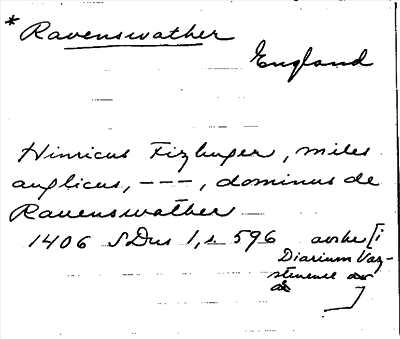 * Ravenswather
England
Hinricus Fizhuger, miles
anglicus, ---, dominus de
Ravenswather
1406 SDns 1, s 596 avskr [i
Diarium Vaz-
stenence av
]